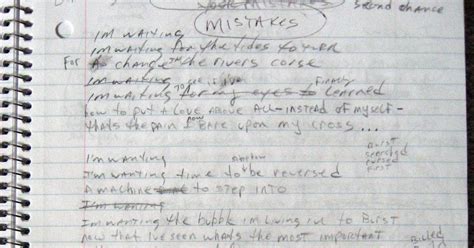 second chance
MISTAKES
I'm waiting
I'm waiting for the tides to turn
For A change in the rivers corse
I'm waiting
Finally
I'm waiting for my eyes to learned
how to put A love above ALL - instead of myself -
thats the pain I now bare upon my cross ...
BURST
I'm wanting
I'm wanting time to be reversed
A machine to step into
I'm wanting
I'm wanting the bubble I'm living in to BURST
now that I've seen whats the most important